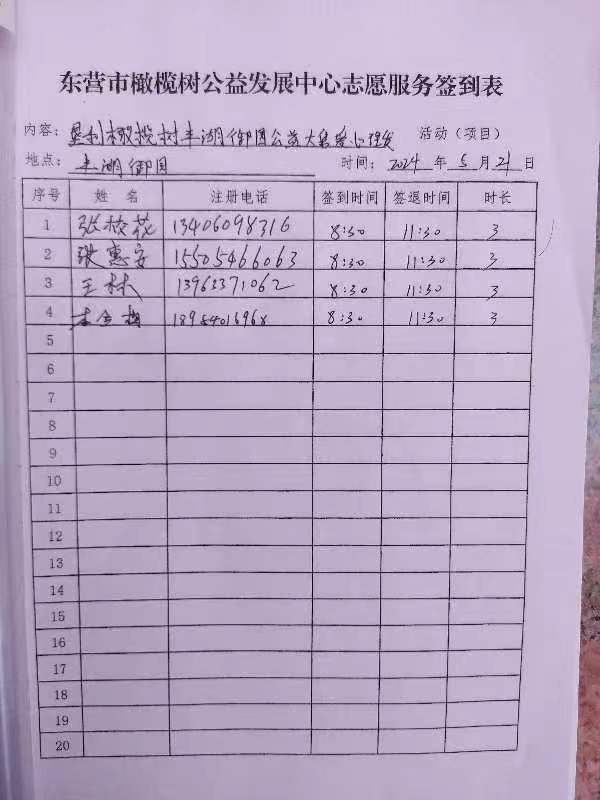 东营市橄榄树公益发展中心志愿服务签到表
内容: 垦利橄榄树丰湖御园公益大集爱心理发 活动（项目）
地点: 丰湖御园 时间: 2024 年 5 月 21 日
序号 姓 名 注册电话 签到时间 签退时间 时长
1 张枝花 13406098316 8:30 11:30 3
2 张惠安 15505466063 8:30 11:30 3
3 王林 13963371062 8:30 11:30 3
4 8:30 11:30 3
5
6
7
8
9
10
11
12
13
14
15
16
17
18
19
20